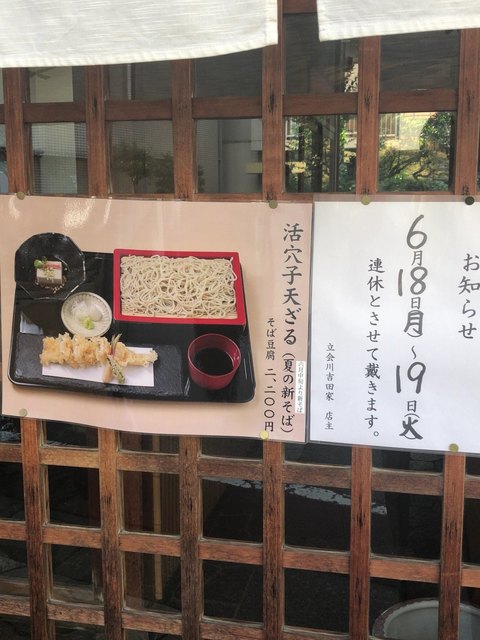 お知らせ
6月18日(月)～19日(火)
連休とさせて戴きます。
立会川吉田家 店主
活穴子天ざる(夏の新そば)
六月中旬より新そば
そば豆腐 二、二〇〇円